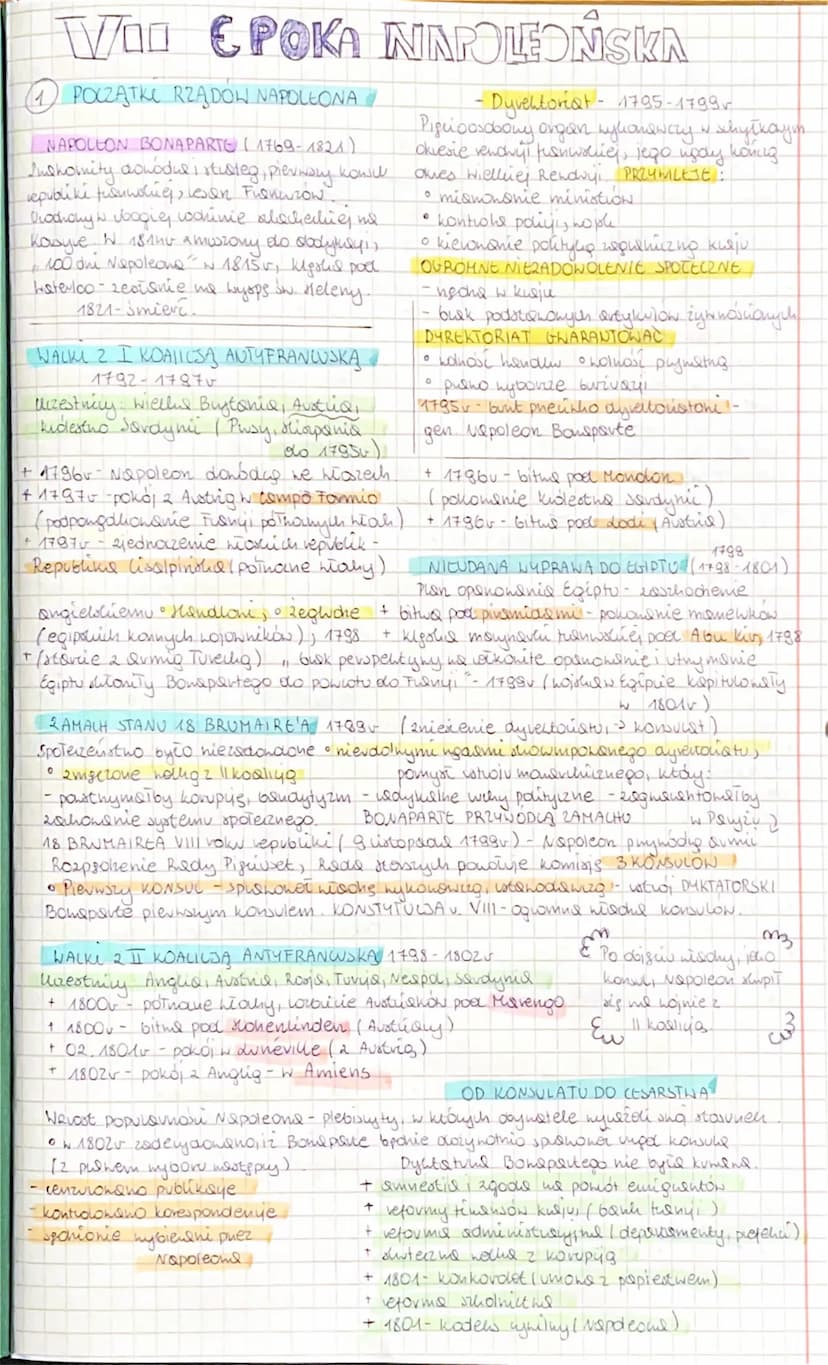 VII EPOKA NAPOLEOŃSKA
1 POCZĄTKI RZĄDÓW NAPOLEONA
NAPOLEON BONAPARTE (1769-1821)
Znakomity dowódca i strateg, pierwszy konsul
republiki francuskiej, cesarz Francuzów.
Urodzony w ubogiej rodzinie szlacheckiej na
Korsyce. W 1814r zmuszony do abdykacji,
"100 dni Napoleona" w 1815r, klęska pod
Waterloo - zesłanie na wyspę św. Heleny.
1821 - śmierć.
WALKI Z I KOALICJĄ ANTYFRANCUSKĄ
1792 - 1797r
Uczestnicy: Wielka Brytania, Austria,
Królestwo Sardynii (Prusy, Hiszpania
do 1795r)
+ 1796r - Napoleon dowódcą we Włoszech
+ 1797r - pokój z Austrią w Campo Formio
(podporządkowanie Francji północnych Włoch)
+ 1797r - zjednoczenie włoskich republik -
Republika Cisalpińska (północne Włochy)
- Dyrektoriat - 1795-1799r
Pięcioosobowy organ wykonawczy w schyłkowym
okresie rewolucji francuskiej, jego rządy kończą
okres Wielkiej Rewolucji. PRZYWILEJE:
° mianowanie ministrów
° kontrola policji, wojsk
° kierowanie polityką zagraniczną kraju
OGROMNE NIEZADOWOLENIE SPOŁECZNE
- nędza w kraju
- brak podstawowych artykułów żywnościowych
DYREKTORIAT GWARANTOWAĆ
° wolność handlu ° wolność prywatną
° prawo wyborcze burżuazji
1795r - bunt przeciwko dyrektoriatowi -
gen. Napoleon Bonaparte
+ 1796r - bitwa pod Mondon
(pokonanie Królestwa Sardynii)
+ 1796r - bitwa pod Lodi (Austria)
NIEUDANA WYPRAWA DO EGIPTU (1798-1801)
1799
Plan opanowania Egiptu - zaszkodzenie
angielskiemu ° handlowi, ° żegludze + bitwa pod piramidami - pokonanie mameluków
(egipskich konnych wojowników), 1798 + klęska marynarki francuskiej pod Abu Kir, 1798
+ (starcie z armią Turecką) " brak perspektywy na całkowite opanowanie i utrzymanie
Egiptu skłoniły Bonapartego do powrotu do Francji" - 1799r (wojska w Egipcie kapitulowały
w 1801r)
ZAMACH STANU 18 BRUMAIRE'A 1799r (zniesienie dyrektoriatu, → konsulat)
Społeczeństwo było niezadowolone ° nieudolnymi rządami skorumpowanego dyrektoriatu,
° zmęczone walką z II koalicją pomysł ustroju monarchicznego, który:
- powstrzymałby korupcję, bandytyzm - radykalne ruchy polityczne - zagwarantowałby
zachowanie systemu społecznego. BONAPARTE PRZYWÓDCĄ ZAMACHU w Paryżu
18 BRUMAIRE'A VIII roku republiki (9 listopada 1799r) - Napoleon przywódcą armii
Rozpędzenie Rady Pięciuset, Rada Starszych powołuje komisję 3 KONSULÓW
° Pierwszy KONSUL - sprawował władzę wykonawczą, ustawodawczą - ustrój DYKTATORSKI
Bonaparte pierwszym konsulem. KONSTYTUCJA r. VIII - ogromna władza konsulów.
WALKI Z II KOALICJĄ ANTYFRANCUSKĄ 1798-1802r
Uczestnicy Anglia, Austria, Rosja, Turcja, Neapol, Sardynia
+ 1800r - północne Włochy, rozbicie Austriaków pod Marengo
+ 1800r - bitwa pod Hohenlinden (Austriacy)
+ 02. 1801r - pokój w Lunéville (z Austrią)
+ 1802r - pokój z Anglią - w Amiens
Po objęciu władzy, jako
konsul, Napoleon skupił
się na wojnie z
II koalicją.
OD KONSULATU DO CESARSTWA
Wzrost popularności Napoleona - plebiscyty, w których obywatele wyrażali swój stosunek.
° w 1802r zadecydowano, iż Bonaparte będzie dożywotnio sprawował urząd konsula
(z prawem wyboru następcy). Dyktatura Bonapartego nie była krwawa.
- cenzurowano publikacje
- kontrolowano korespondencje
- sędziowie wybierani przez
Napoleona
+ amnestia i zgoda na powrót emigrantów
+ reformy finansów kraju (bank Francji)
+ reforma administracyjna (departamenty, prefekci)
+ skuteczna walka z korupcją
+ 1801 - konkordat (umowa z papiestwem)
+ reforma szkolnictwa
+ 1801 - kodeks cywilny (Napoleona)